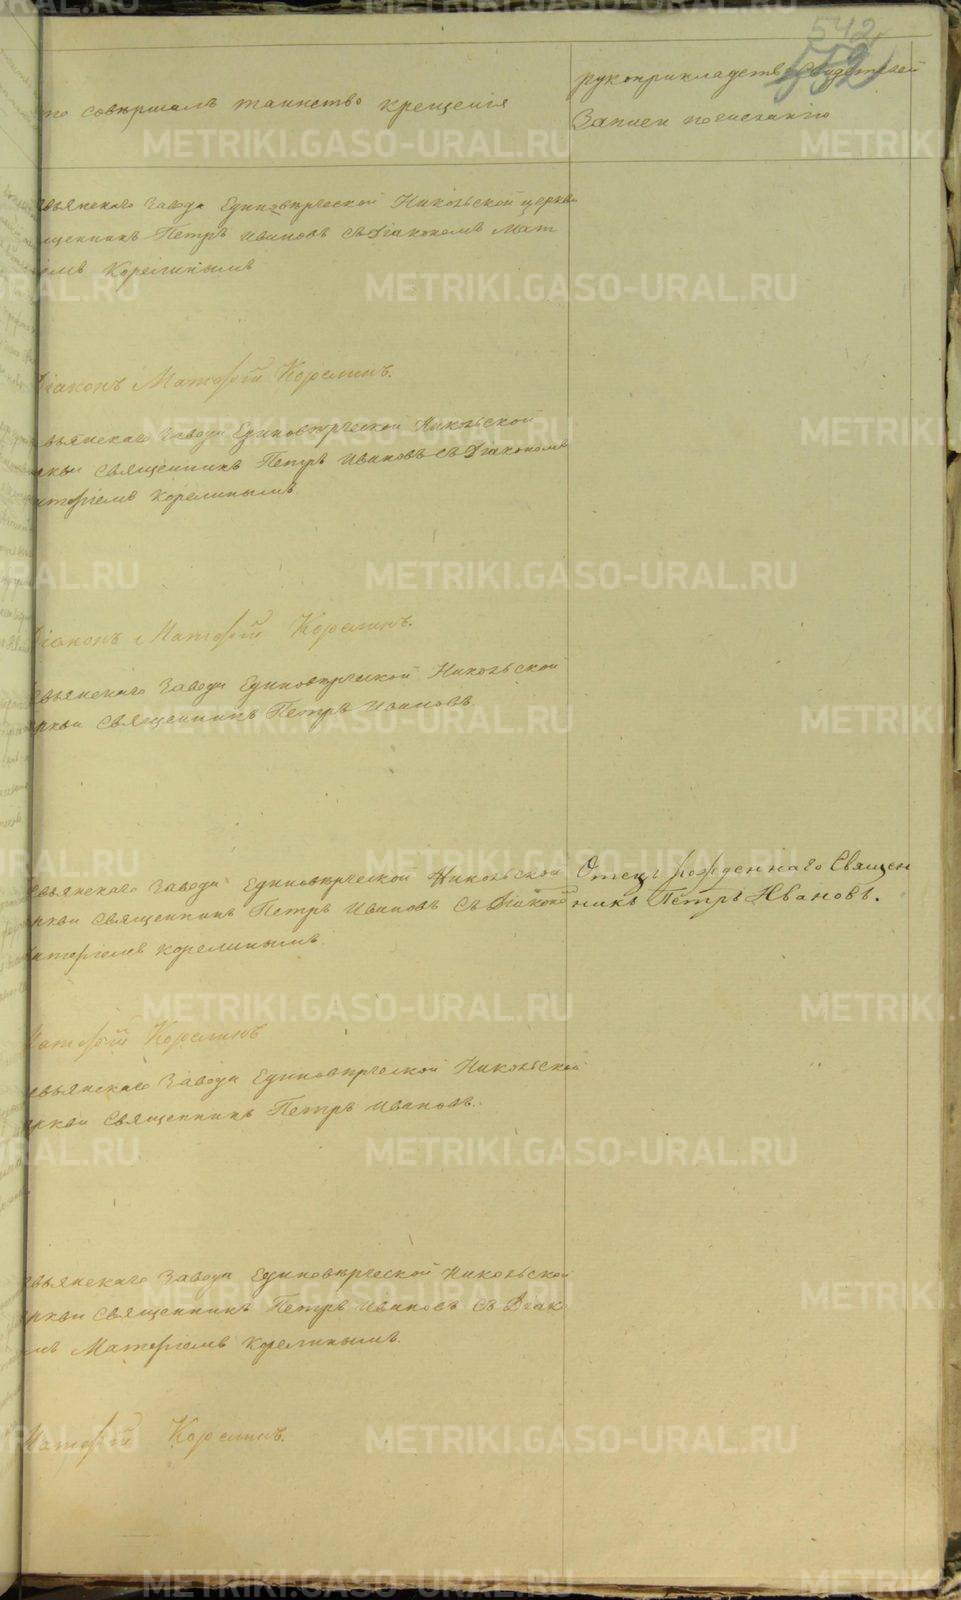 542
552
то совершалъ таинство крещенія
рукоприкладство свидетелей
записи по желанію
евьянскаго завода Единоверческой Никольской церкви
ященникъ Петръ Ивановъ съ Діакономъ Мат
емъ Корелинымъ
Діаконъ Матофій Корелинъ.
вьянскаго завода Единоверческой Никольской
ркви священникъ Петръ Ивановъ съ Діакономъ
атофіемъ Корелинымъ
Діаконъ Матофій Корелинъ.
евьянскаго завода Единоверческой Никольской
ркви священникъ Петръ Ивановъ.
евьянскаго завода Единоверческой Никольской
ркви священникъ Петръ Ивановъ съ Діаконо
Матофіемъ Корелинымъ
Отецъ рожденнаго Священ
никъ Петръ Ивановъ.
Матофій Корелинъ
евьянскаго завода Единоверческой Никольской
ркви священникъ Петръ Ивановъ.
евьянскаго завода Единоверческой Никольской
ркви священникъ Петръ Ивановъ съ Діако
мъ Матофіемъ Корелинымъ.
Матофій Корелинъ.
METRIKI.GASO-URAL.RU